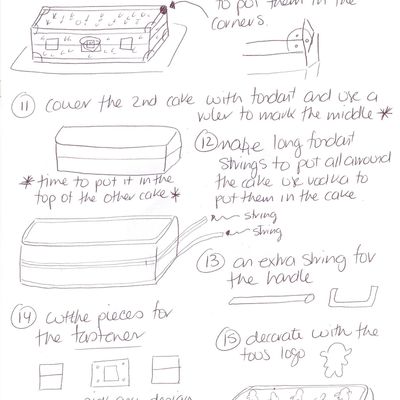 to put them in the
corners.
11 cover the 2nd cake with fondant and use a
ruler to mark the middle *
12 make long fondant
strings to put all around
the cake use vodka to
put them in the cake.
* time to put it in the
top of the other cake *
string
string
13 an extra string for
the handle
14 cut the pieces for
the fastener
15 decorate with the
tous logo
any design